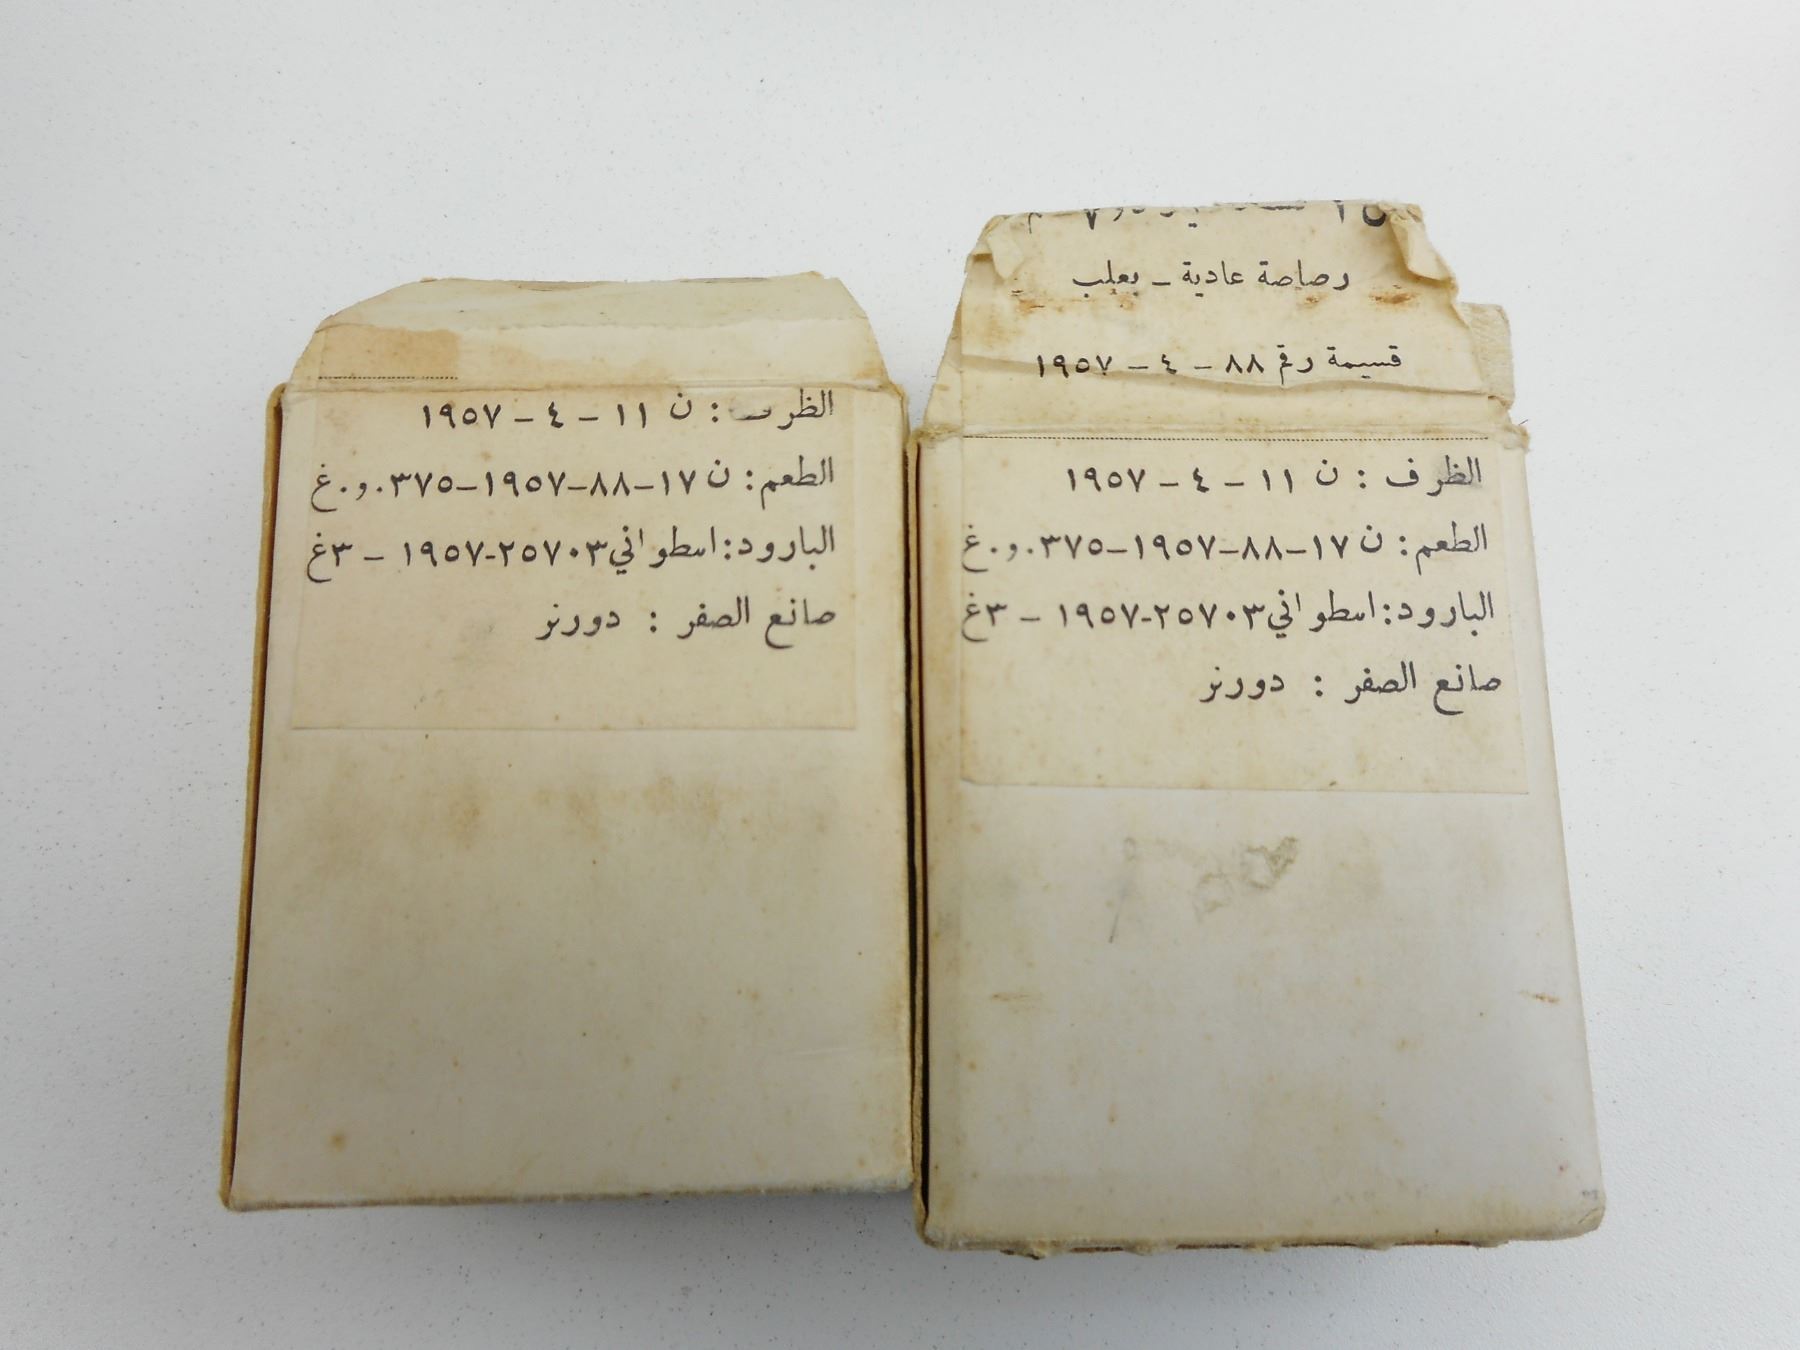 الظرف : ن ١١ - ٤ - ١٩٥٧
الطعم : ن ١٧-٨٨-١٩٥٧-٣٧٥.و.غ
البارود : اسطواني ٢٥٧٠٣-١٩٥٧ - ٣غ
صانع الصفر : دورنز
رصاصة عادية - بعلب
قسيمة رقم ٨٨ - ٤ - ١٩٥٧
الظرف : ن ١١ - ٤ - ١٩٥٧
الطعم : ن ١٧-٨٨-١٩٥٧-٣٧٥.و.غ
البارود : اسطواني ٢٥٧٠٣-١٩٥٧ - ٣غ
صانع الصفر : دورنز